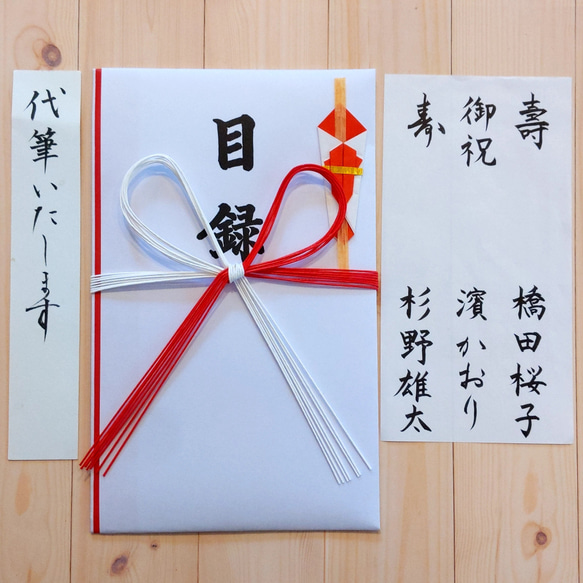 壽
橋田桜子
御祝
濱かおり
寿
杉野雄太
目録
代筆いたします